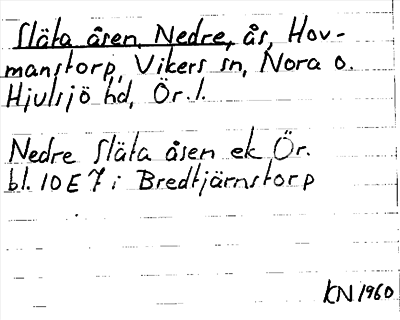 Släta åsen, Nedre, ås, Hov-
manstorp, Vikers sn, Nora o.
Hjulsjö hd, Ör. l.
Nedre Släta åsen ek Ör.
bl. 10 E 7 i Bredtjärnstorp
KN 1960